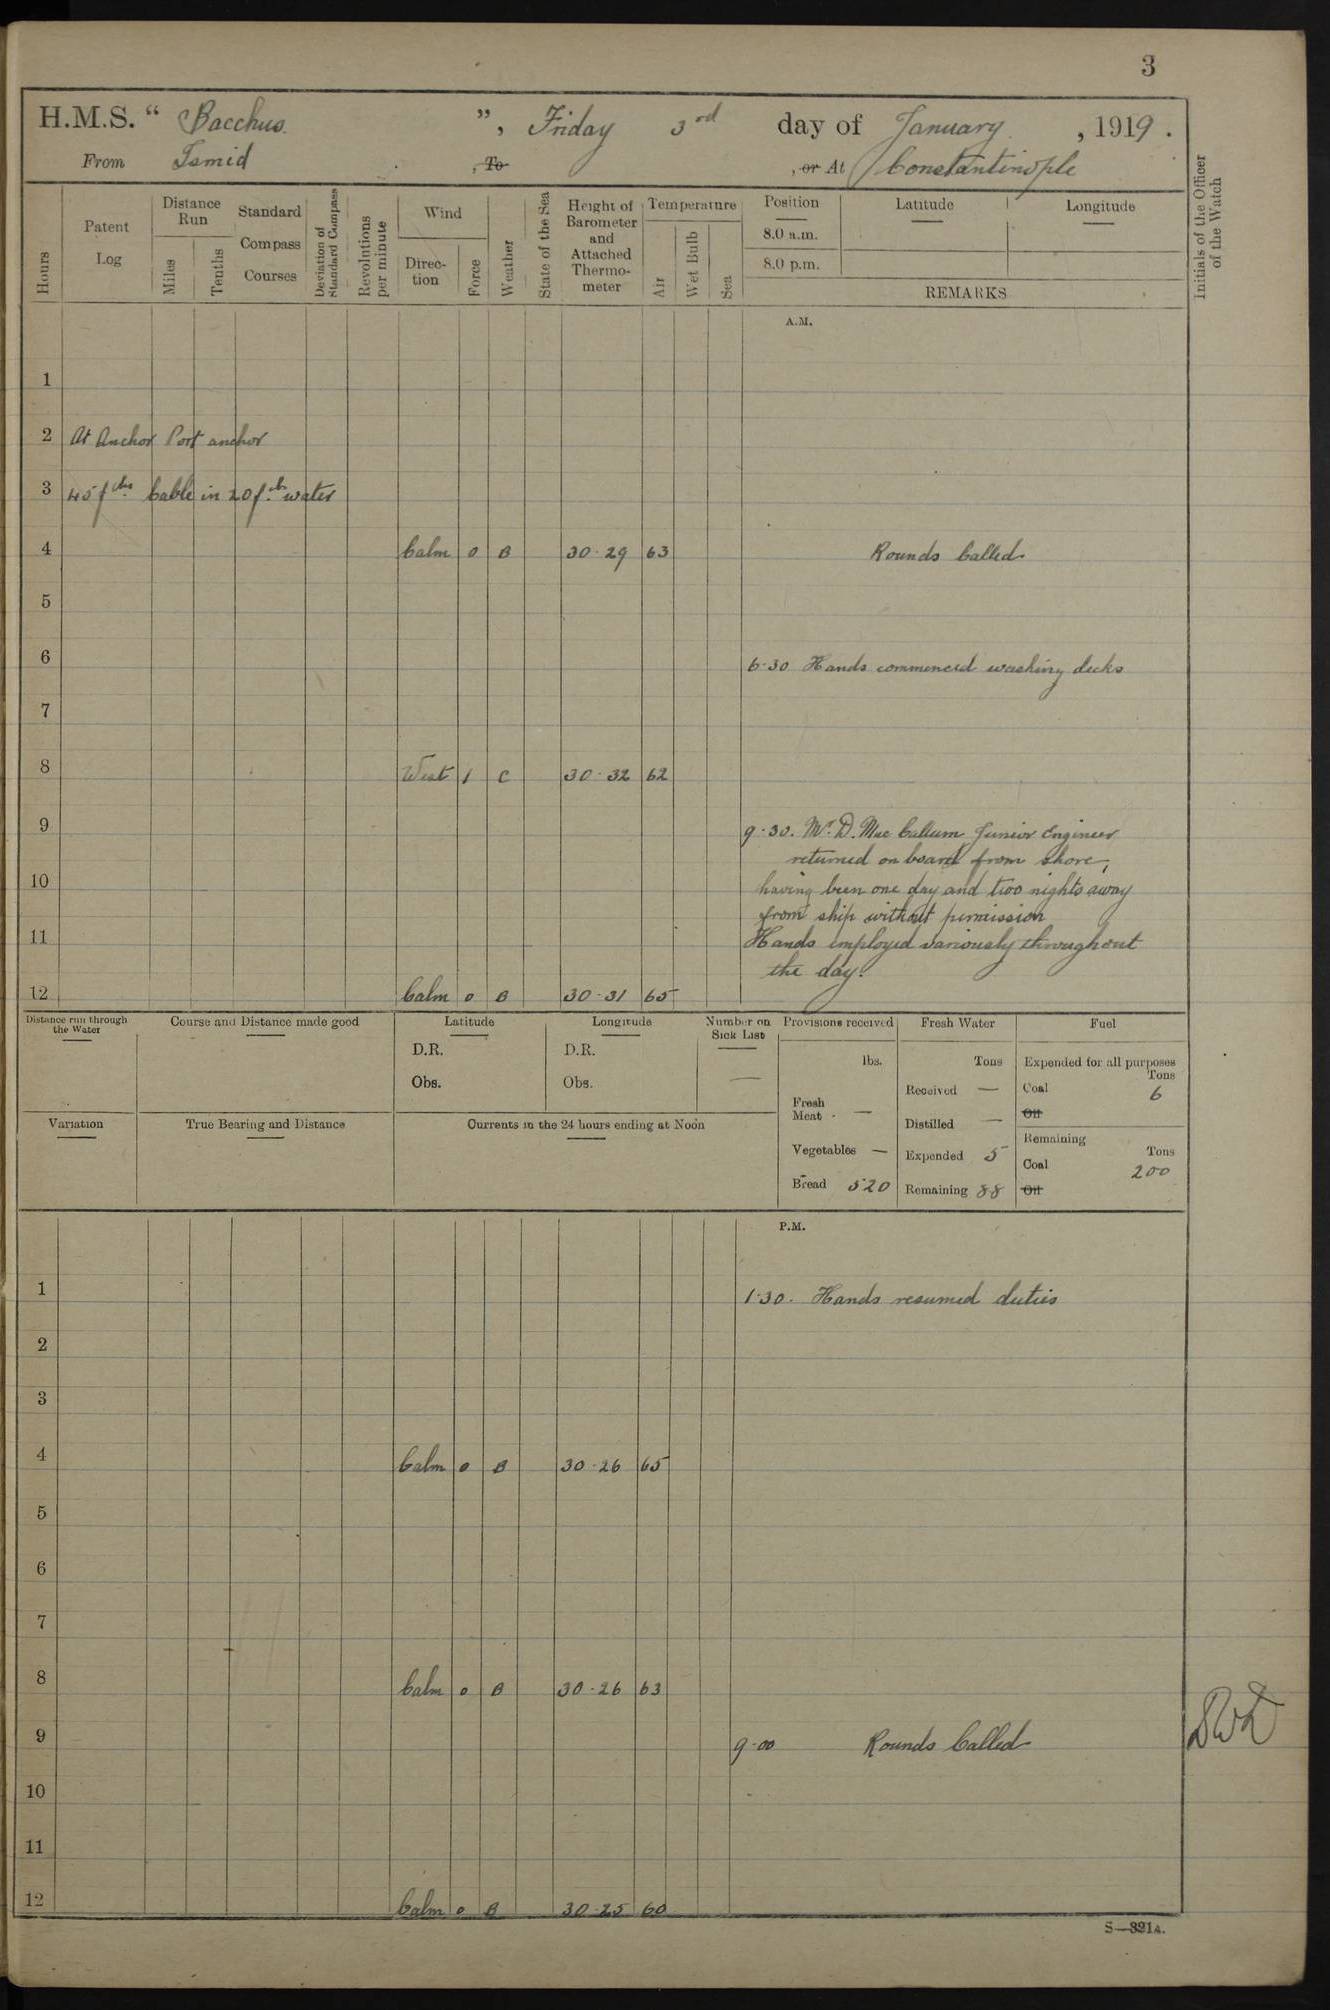 3
H.M.S. “ Bacchus ”, Friday 3rd day of January , 1919 .
From Ismid , To , or At Constantinople
Hours
Patent Log
Distance Run
Miles
Tenths
Standard Compass Courses
Deviation of Standard Compass
Revolutions per minute
Wind
Direc-tion
Force
Weather
State of the Sea
Height of Barometer and Attached Thermo-meter
Temperature
Air
Wet Bulb
Sea
Position Latitude Longitude
8.0 a.m.
8.0 p.m.
REMARKS
Initials of the Officer of the Watch
A.M.
1
2 At Anchor Port anchor
3 45 fths Cable in 20 fth water
4 Calm 0 B 30·29 63 Rounds Called
5
6 6·30 Hands commenced washing decks
7
8 West 1 C 30·32 62
9 9·30. Mr. D. Mac Callum Junior Engineer
returned on board from shore,
10 having been one day and two nights away
from ship without permission
11 Hands employed variously throughout
the day.
12 Calm 0 B 30·31 65
Distance run through the Water
Course and Distance made good
Latitude
D.R.
Obs.
Longitude
D.R.
Obs.
Number on Sick List
—
Provisions received
lbs.
Fresh Meat - —
Vegetables —
Bread 520
Fresh Water
Tons
Received —
Distilled —
Expended 5
Remaining 88
Fuel
Expended for all purposes
Tons
Coal 6
Oil
Remaining
Tons
Coal 200
Oil
Variation
True Bearing and Distance
Currents in the 24 hours ending at Noon
P.M.
1 1·30. Hands resumed duties
2
3
4 Calm 0 B 30·26 65
5
6
7
8 Calm 0 B 30·26 63
9 9·00 Rounds Called
10
11
12 Calm 0 B 30·25 60
S—321A.